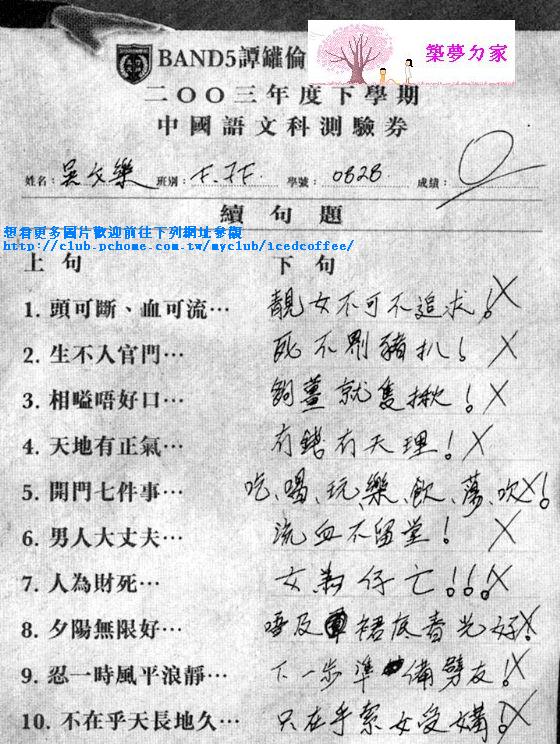 BAND5譚罐倫
築夢ㄉ家
二〇〇三年度下學期
中國語文科測驗券
姓名：吳文樂 班別： 學號：0828 成績：0
續句題
想看更多圖片歡迎前往下列網址參觀
http://club.pchome.com.tw/myclub/icedcoffee/
上句 下句
1. 頭可斷、血可流… 靚女不可不追求！
2. 生不入官門… 死不㓥豬扒！
3. 相嗌唔好口… 鍘薑就隻揪！
4. 天地有正氣… 有錢有天理！
5. 開門七件事… 吃、喝、玩、樂、飲、蕩、吹！
6. 男人大丈夫… 流血不留堂！
7. 人為財死… 女為仔亡！！！
8. 夕陽無限好… 唔及裙底春光好！
9. 忍一時風平浪靜… 下一步準備劈友！
10. 不在乎天長地久… 只在乎索女受媾！